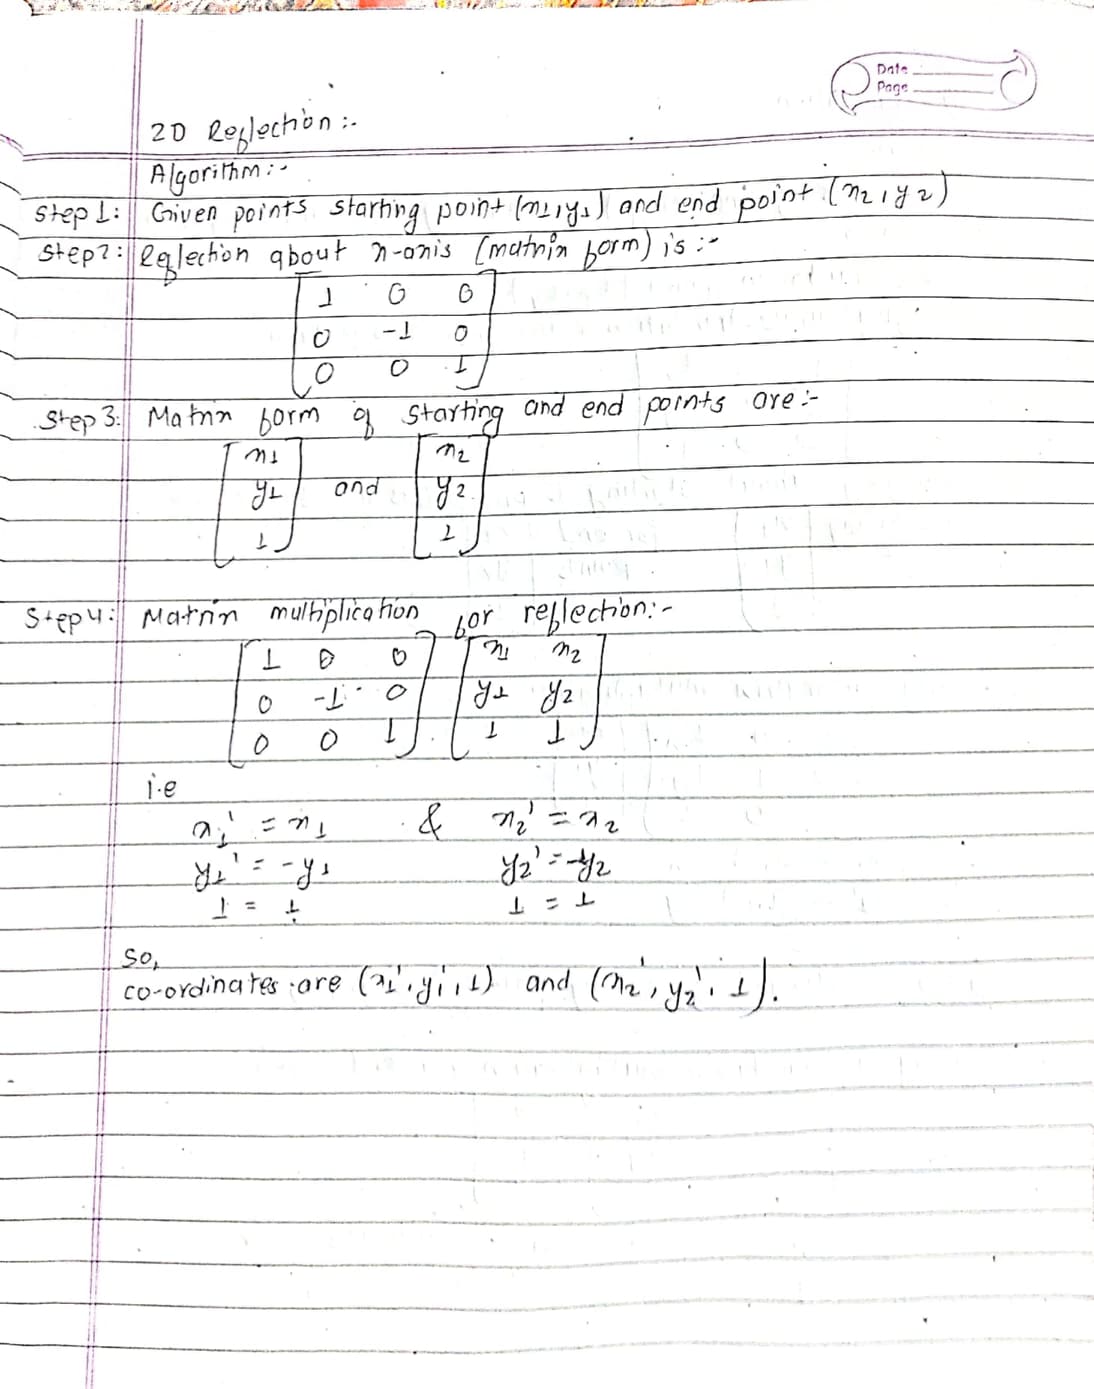 Date
Page
2D Reflection :-
Algorithm :-
Step 1: Given points starting point (x1, y1) and end point (x2, y2)
Step 2: Reflection about x-axis (matrix form) is :-
1 0 0
0 -1 0
0 0 1
Step 3: Matrix form of starting and end points are :-
x1 x2
y1 and y2
1 1
Step 4: Matrix multiplication for reflection :-
1 0 0 x1 x2
0 -1 0 y1 y2
0 0 1 . 1 1
i.e
x1' = x1 & x2' = x2
y1' = -y1 y2' = -y2
1 = 1 1 = 1
So,
co-ordinates are (x1', y1', 1) and (x2', y2', 1).